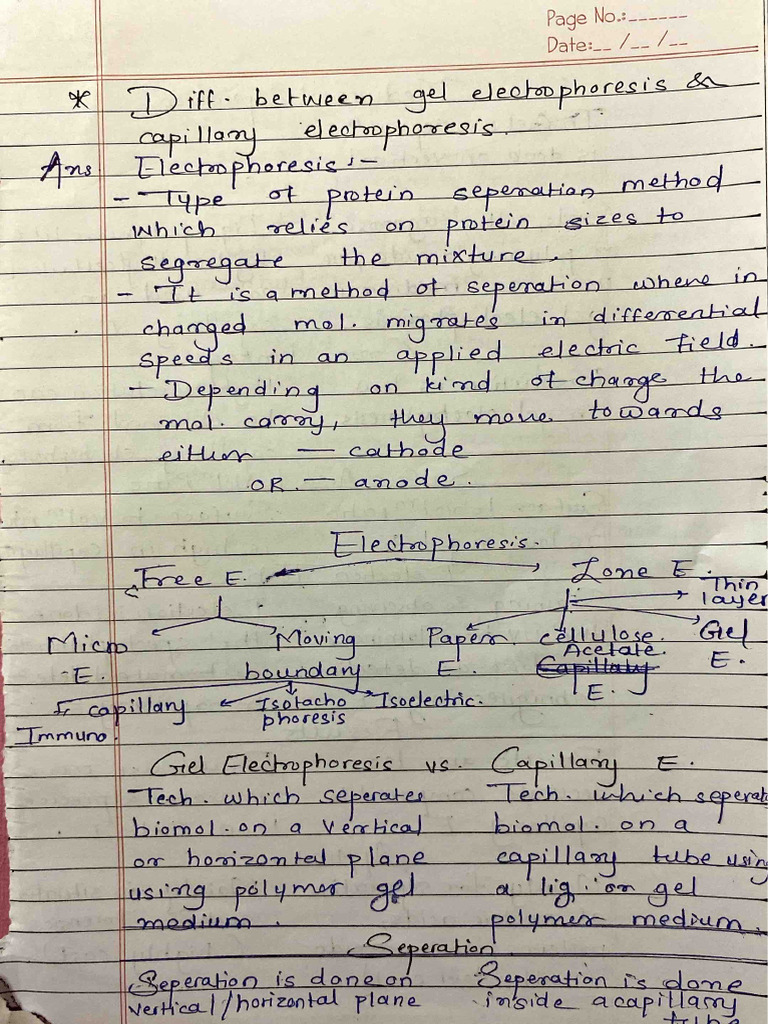 Page No.:______
Date:__/__/__
* Diff. between gel electrophoresis &
capillary electrophoresis.
Ans Electrophoresis :-
- Type of protein seperation method
which relies on protein sizes to
segregate the mixture.
- It is a method of seperation where in
charged mol. migrates in differential
speeds in an applied electric field.
- Depending on kind of charge the
mol. carry, they move towards
either — cathode
OR — anode.
Electrophoresis.
Free E. Zone E.
Thin
layer
Micro Moving Paper cellulose. Gel
Acetate.
E. boundary E. Capillary E.
E.
capillary Isotacho Isoelectric.
phoresis
Immuno.
Gel Electrophoresis vs. Capillary E.
Tech. which seperates Tech. which seperate
biomol. on a vertical biomol. on a
or horizontal plane capillary tube using
using polymer gel a liq. or gel
medium. polymer medium.
Seperation
Seperation is done on Seperation is done
vertical/horizontal plane inside a capillary
tube